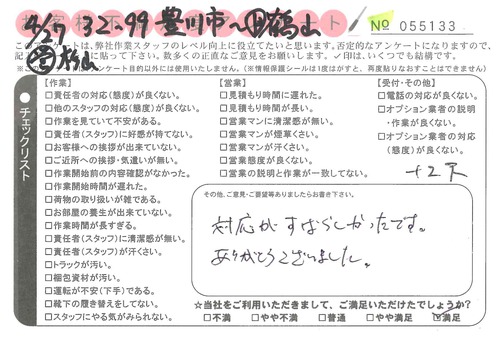 4/27 32-99 豊川市〜
№ 055133
このアンケートは、弊社作業スタッフのレベル向上に役立てたいと思います。否定的なアンケートになりますので、
に貼って下さい。数多くの正直なご意見をお願いします。✓印は、いくつでも結構です。
ンケート目的以外には使用いたしません。（情報保護シールは1度はがすと、再度貼りなおすことはできません）
チェックリスト
【作業】
□責任者の対応（態度）が良くない。
□他のスタッフの対応（態度）が良くない。
□作業を見ていて不安がある。
□責任者（スタッフ）に好感が持てない。
□お客様への挨拶が出来ていない。
□ご近所への挨拶・気遣いが無い。
□作業開始前の内容確認がなかった。
□作業開始時間が遅れた。
□荷物の取り扱いが雑である。
□お部屋の養生が出来ていない。
□作業時間が長すぎる。
□責任者（スタッフ）に清潔感が無い。
□責任者（スタッフ）が汗くさい。
□トラックが汚い。
□梱包資材が汚い。
□運転が不安（下手）である。
□靴下の履き替えをしてない。
□スタッフにやる気がみられない。
【営業】
□見積もり時間に遅れた。
□見積もり時間が長い。
□営業マンに清潔感が無い。
□営業マンが煙草くさい。
□営業マンが汗くさい。
□営業態度が良くない。
□営業の説明と作業が一致してない。
【受付・その他】
□電話の対応が良くない。
□オプション業者の説明
・作業が良くない。
□オプション業者の対応
（態度）が良くない。
+2点
その他、ご意見・ご要望等ありましたらお書き下さい。
対応がすばらしかったです。
ありがとうございました。
☆当社をご利用いただきまして、ご満足いただけたでしょうか？
□不満 □やや不満 □普通 □やや満足 ☑満足